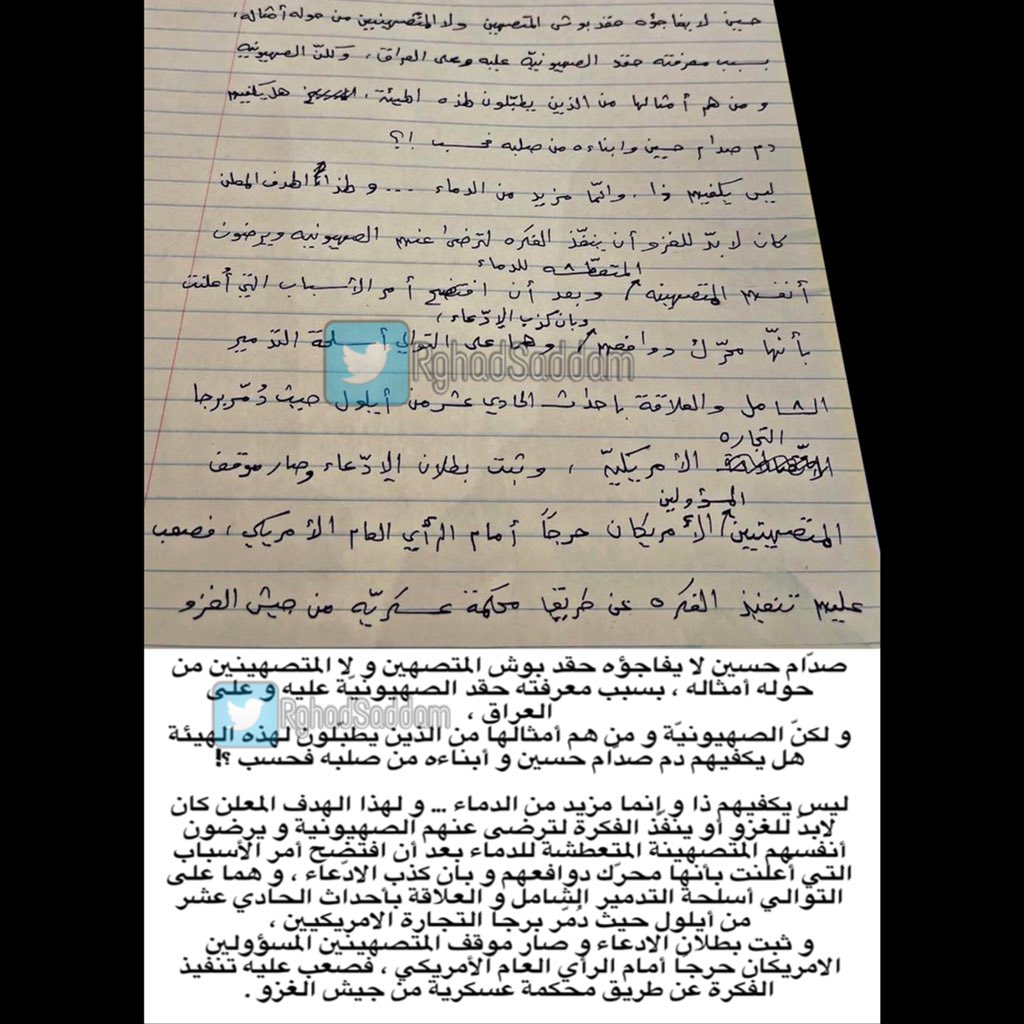 حسين لا يفاجؤه حقد بوش المتصهين ولا المتصهينين من حوله أمثاله،
بسبب معرفته حقد الصهيونيّة عليه وعلى العراق، ولكنّ الصهيونيه
و من هم أمثالها من الذين يطبّلون لهذه الهيئة، هل يكفيهم
دم صدام حسين وابناءه من صلبه فحسب !؟
ليس يكفيهم ذا، وانّما مزيد من الدماء ... و لهذا الهدف المعلن
كان لا بدّ للغزو أن ينفّذ الفكره لترضى عنهم الصهيونيه ويرضون
المتعطّشه للدماء
أنفسهم المتصهينه و بعد أن افتضح أمر الأسباب التي أُعلنت
وبان كذب الإدّعاء،
بأنّها محرّك دوافعهم، وهما على التوالي أسلحة التدمير
الشامل والعلاقة بأحداث الحادي عشر من أيلول حيث دُمّر برجا
التجاره
الأمريكيّة، و ثبت بطلان الإدّعاء وصار موقف
المسؤولين
المتصهينين الأمريكان حرجاً أمام الرأي العام الأمريكي، فصعب
عليهم تنفيذ الفكره عن طريق محكمة عسكريّه من جيش الغزو
RghadSaddam
صدّام حسين لا يفاجؤه حقد بوش المتصهين و لا المتصهينين من
حوله أمثاله ، بسبب معرفته حقد الصهيونيّة عليه و على
العراق ،
RghadSaddam
و لكنّ الصهيونيّة و من هم أمثالها من الذين يطبّلون لهذه الهيئة
هل يكفيهم دم صدّام حسين و أبناءه من صلبه فحسب ؟!
ليس يكفيهم ذا و إنما مزيد من الدماء ... و لهذا الهدف المعلن كان
لابدّ للغزو أو ينفّذ الفكرة لترضى عنهم الصهيونية و يرضون
أنفسهم المتصهينة المتعطشة للدماء بعد أن افتضح أمر الأسباب
التي أعلنت بأنها محرّك دوافعهم و بان كذب الادّعاء ، و هما على
التوالي أسلحة التدمير الشامل و العلاقة بأحداث الحادي عشر
من أيلول حيث دُمّر برجا التجارة الامريكيين ،
و ثبت بطلان الادعاء و صار موقف المتصهينين المسؤولين
الامريكان حرجاً أمام الرأي العام الأمريكي ، فصعب عليه تنفيذ
الفكرة عن طريق محكمة عسكرية من جيش الغزو .